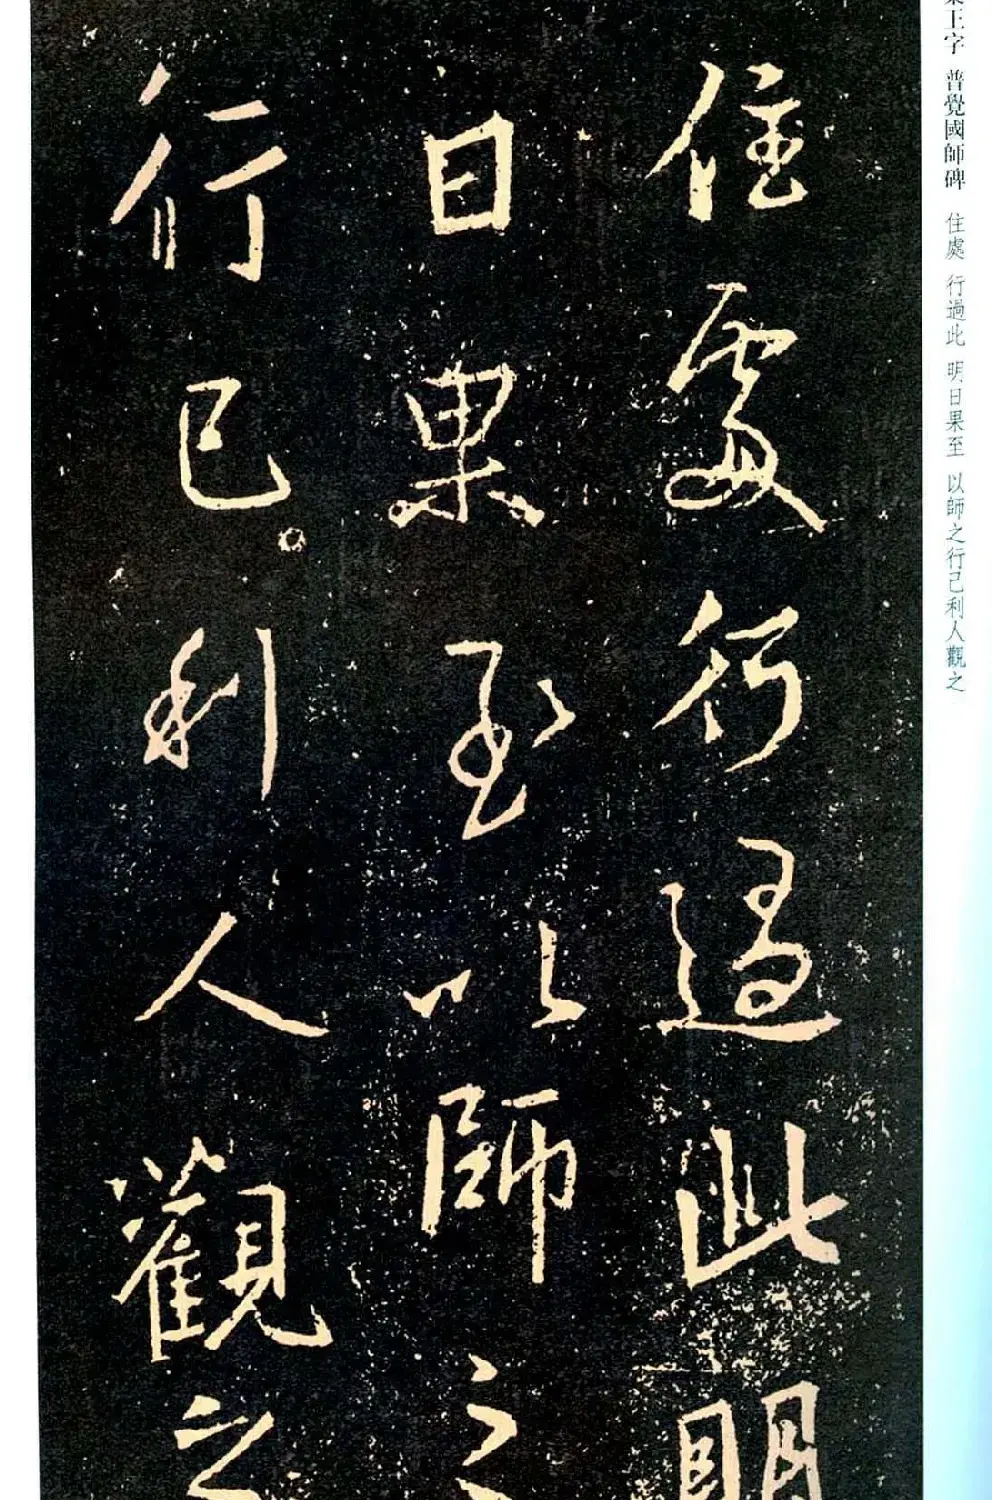 王字 普覺國師碑 住處 行過此 明日果至 以師之行己利人觀之
住處行過此明
日果至以師之
行已利人觀之